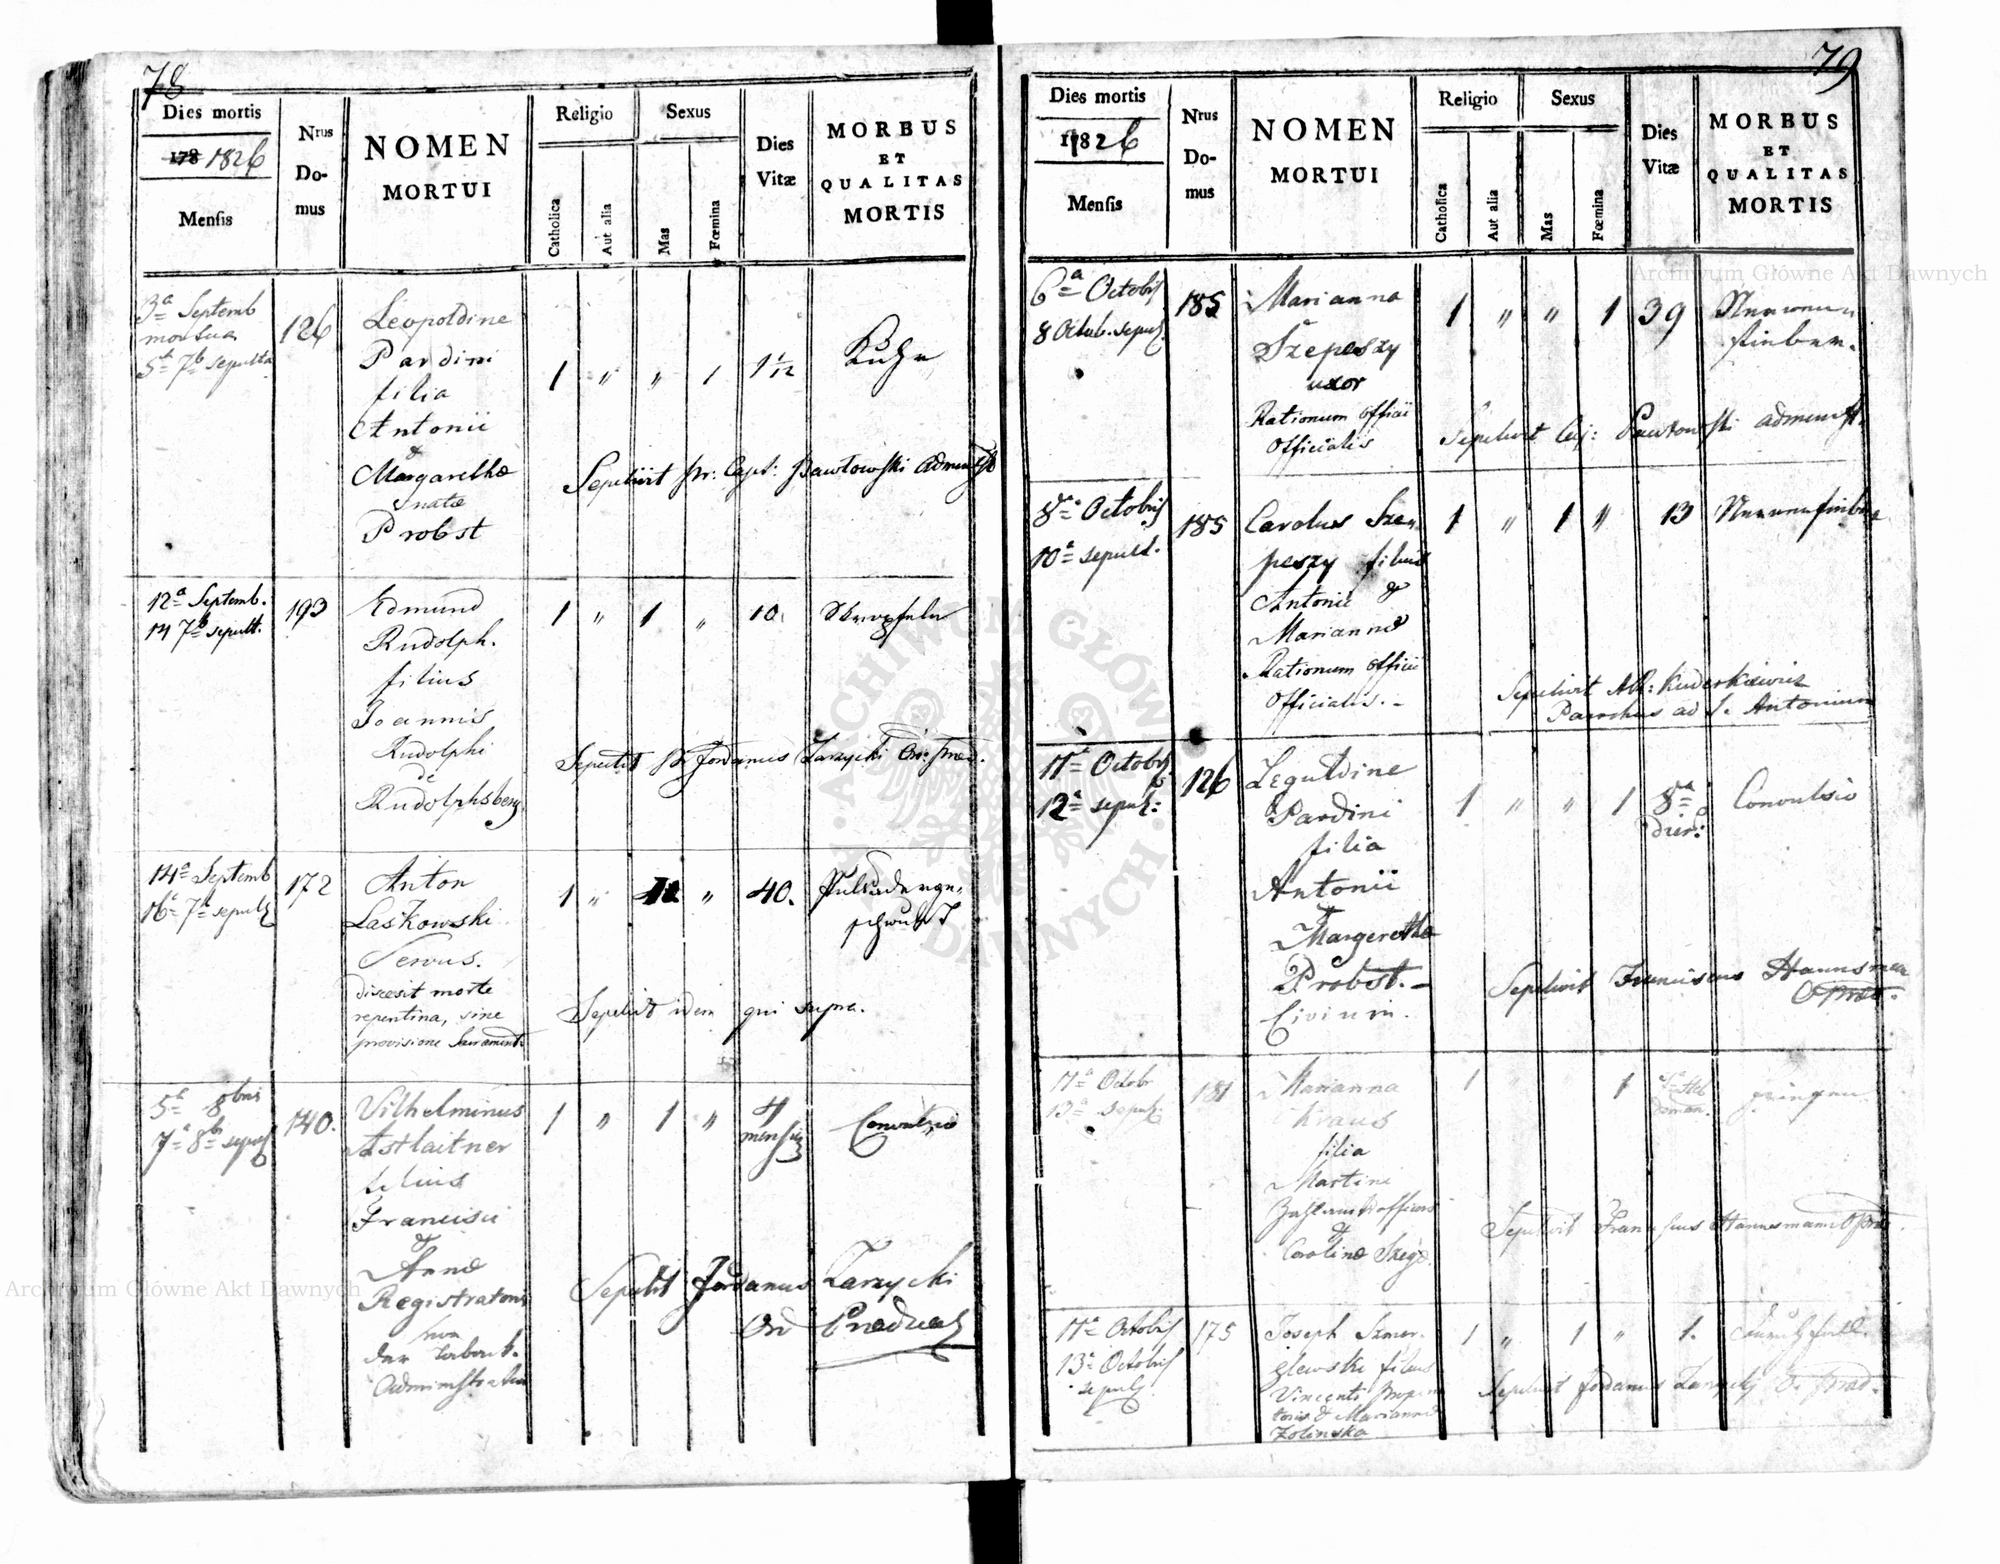 78
Dies mortis
178 1826
Mensis
Nrus
Do-
mus
NOMEN
MORTUI
Religio
Catholica
Aut alia
Sexus
Mas
Fœmina
Dies
Vitæ
MORBUS
ET
QUALITAS
MORTIS
3a Septemb
mortua
5a 7b sepulta
126
Leopoldine
Pardini
filia
Antonii
&
Margarethæ
natæ
Probst
1 " " 1 1 1/12
Ruhr
Sepelivit Capt: Pawlowski
12a Septemb.
14 7b sepult.
193
Edmund
Rudolph.
filius
Joannis
Rudolphi
de
Rudolphsberg
1 " 1 " 10.
Sepelit Jordanus Zarzycki Ord: Præd.
14a Septemb
16a 7b sepult
172
Anton
Laskowski
Servus.
discesit morte
repentina, sine
provisione Sacrament.
1 " 1 " 40.
Pulsaderge-
schwulst
Sepelivit idem qui supra.
5a 8bris
7a 8b sepult
140.
Vilhelminus
Astlaitner
filius
Francisci
&
Annæ
Registratoris
von
der Taback.
Administration
1 " 1 " 4
mensis
Convulsio
Sepelit Jordanus Zarzycki
Ord Prædicat
79
Dies mortis
1826
Mensis
Nrus
Do-
mus
NOMEN
MORTUI
Religio
Catholica
Aut alia
Sexus
Mas
Fœmina
Dies
Vitæ
MORBUS
ET
QUALITAS
MORTIS
6a Octobris
8 Octob. sepul.
185
Marianna
Szepeszy
uxor
Rationum officii
Officialis
1 " " 1 39
Nerven-
fieber.
Sepelivit Pawlowski
8a Octobris
10a sepult.
185
Carolus Sze-
peszy filius
Antonii &
Mariannæ
Rationum officii
Officialis. -
1 " 1 " 13
Nervenfieber
Sepelivit Kuderkiewicz
Parochus ad S. Antonium
11a Octobris
12a sepul:
126
Pardini
filia
Antonii
&
Margerethæ
Probst. -
Civium.
1 " " 1 8a
dier:
Convulsio
Sepelivit Franciscus Hannsman
O Præd.
11a Octobr
13a sepul.
181
Marianna
Kraus
filia
Martini
Zahlamts officiers
&
Carolinæ
1 " 1
Fraisen
Sepelivit Franciscus Hannsmann O Præd.
11a Octobris
13a Octobris
sepul.
175
Joseph Szmer-
zlewski filius
Vincenti
& Marianna
Zolinska
1 " 1 " 1.
Sepelivit Jordanus Zarzycki O. Præd.
Archiwum Główne Akt Dawnych
Archiwum Główne Akt Dawnych
ARCHIWUM GŁÓWNE AKT DAWNYCH